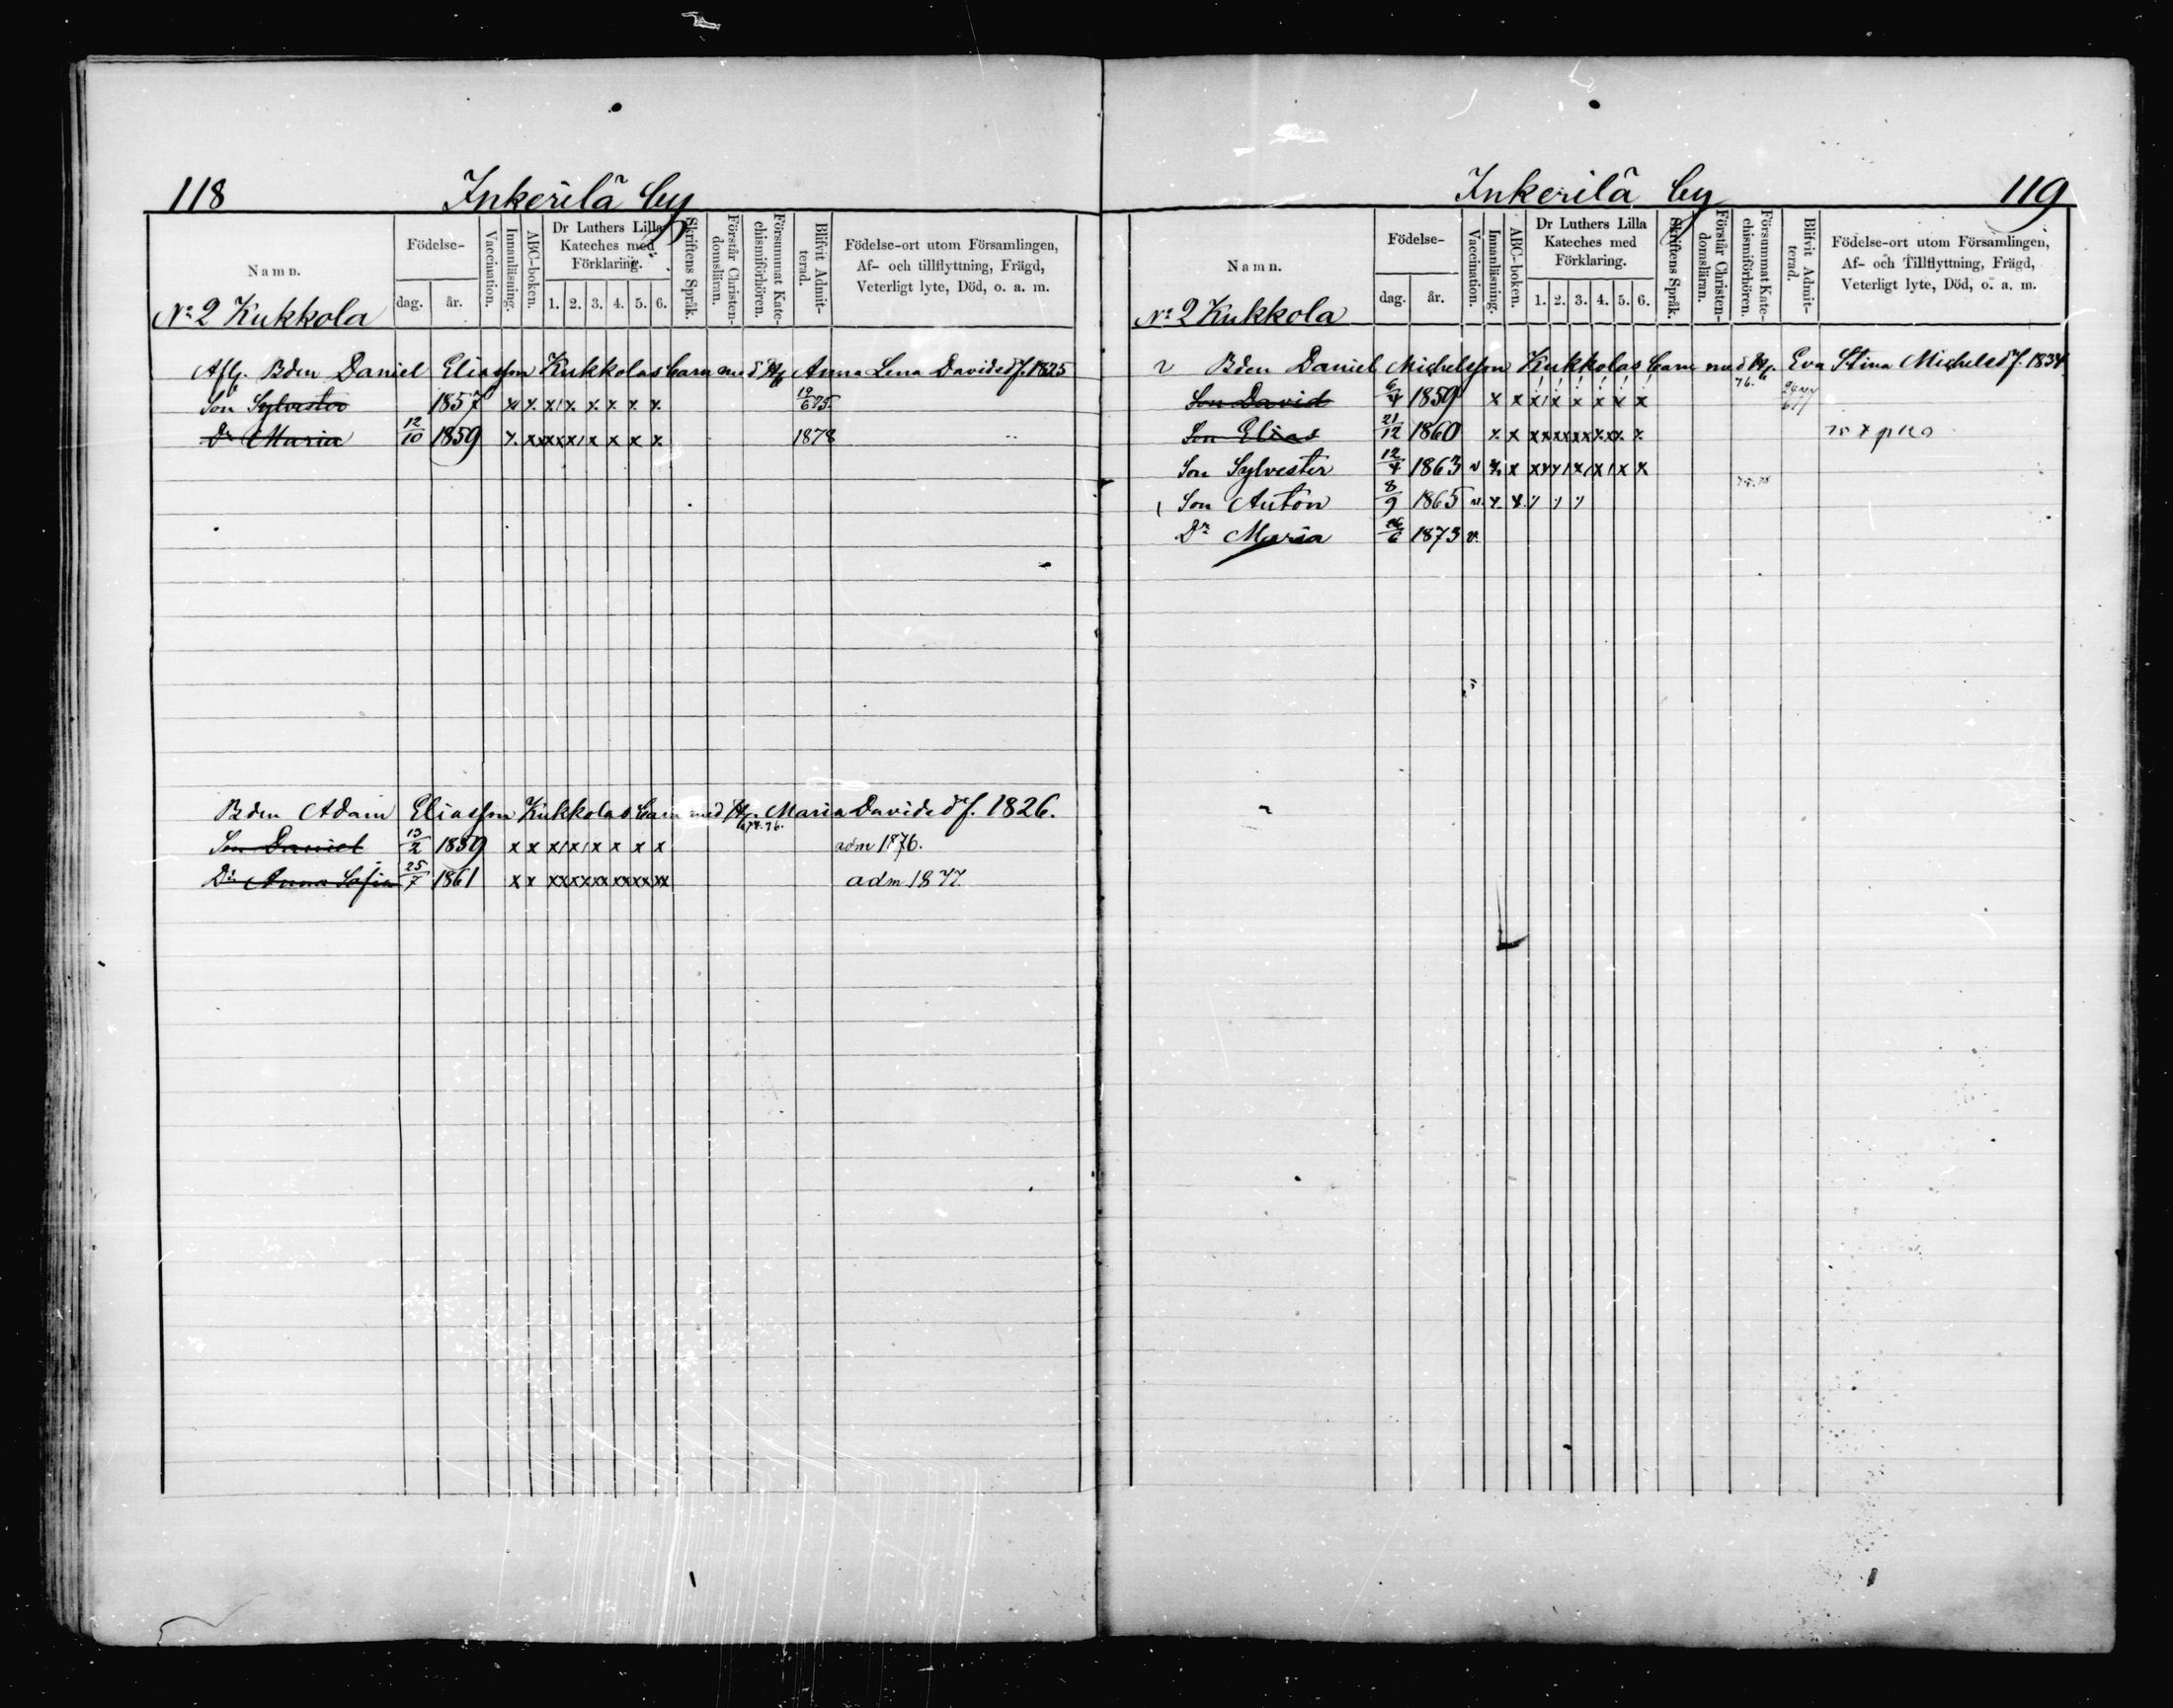 118 Inkerilä by
Namn. Födelse- dag. år. Vaccination. Innanläsning. ABC-boken. Dr Luthers Lilla Kateches med Förklaring. 1. 2. 3. 4. 5. 6. Skriftens Språk. Förstår Christen-domsläran. Försummat Kate-chismiförhören. Blifvit Admit-terad. Födelse-ort utom Församlingen, Af- och tillflyttning, Frägd, Veterligt lyte, Död, o. a. m.
No 2 Kukkola
Afl. Bden Daniel Eliasson Kukkolas barn med Hu Anna Lena Davidsdr f. 1825
Son Sylvester 1857 x x x x x x x x 19/6 75.
Dr Maria 12/10 1859 x xxxxx x x x x 1878
Bden Adam Eliasson Kukkolas barn med Hu. Maria Davidsdr f. 1826.
Son Daniel 13/2 1859 x x x x x x x x adm 1876.
Dr Anna Sofia 25/7 1861 x x xx xx xx xx xx xx adm 1877.
Inkerilä by 119
Namn. Födelse- dag. år. Vaccination. Innanläsning. ABC-boken. Dr Luthers Lilla Kateches med Förklaring. 1. 2. 3. 4. 5. 6. Skriftens Språk. Förstår Christen-domsläran. Försummat Kate-chismiförhören. Blifvit Admit-terad. Födelse-ort utom Församlingen, Af- och Tillflyttning, Frägd, Veterligt lyte, Död, o. a. m.
No 2 Kukkola
Bden Daniel Michelsson Kukkolas barn med Hu. Eva Stina Michelsdr f. 1834.
Son David 6/4 1859 x x x x x x x x 76. 24/6 77
Son Elias 21/12 1860 x x xx xx xx xx x
Son Sylvester 12/4 1863 v x x x x x x x x
Son Anton 8/9 1865 v. x x 75.78
Dr Maria 1873 v.